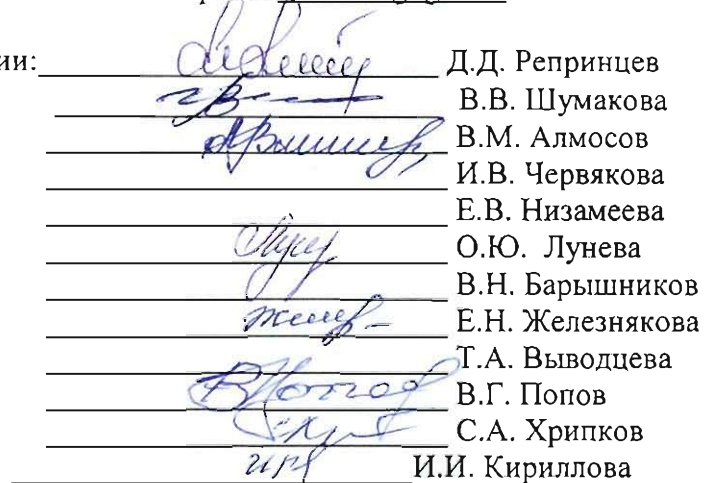 ии: Д.Д. Репринцев
В.В. Шумакова
В.М. Алмосов
И.В. Червякова
Е.В. Низамеева
О.Ю. Лунева
В.Н. Барышников
Е.Н. Железнякова
Т.А. Выводцева
В.Г. Попов
С.А. Хрипков
И.И. Кириллова